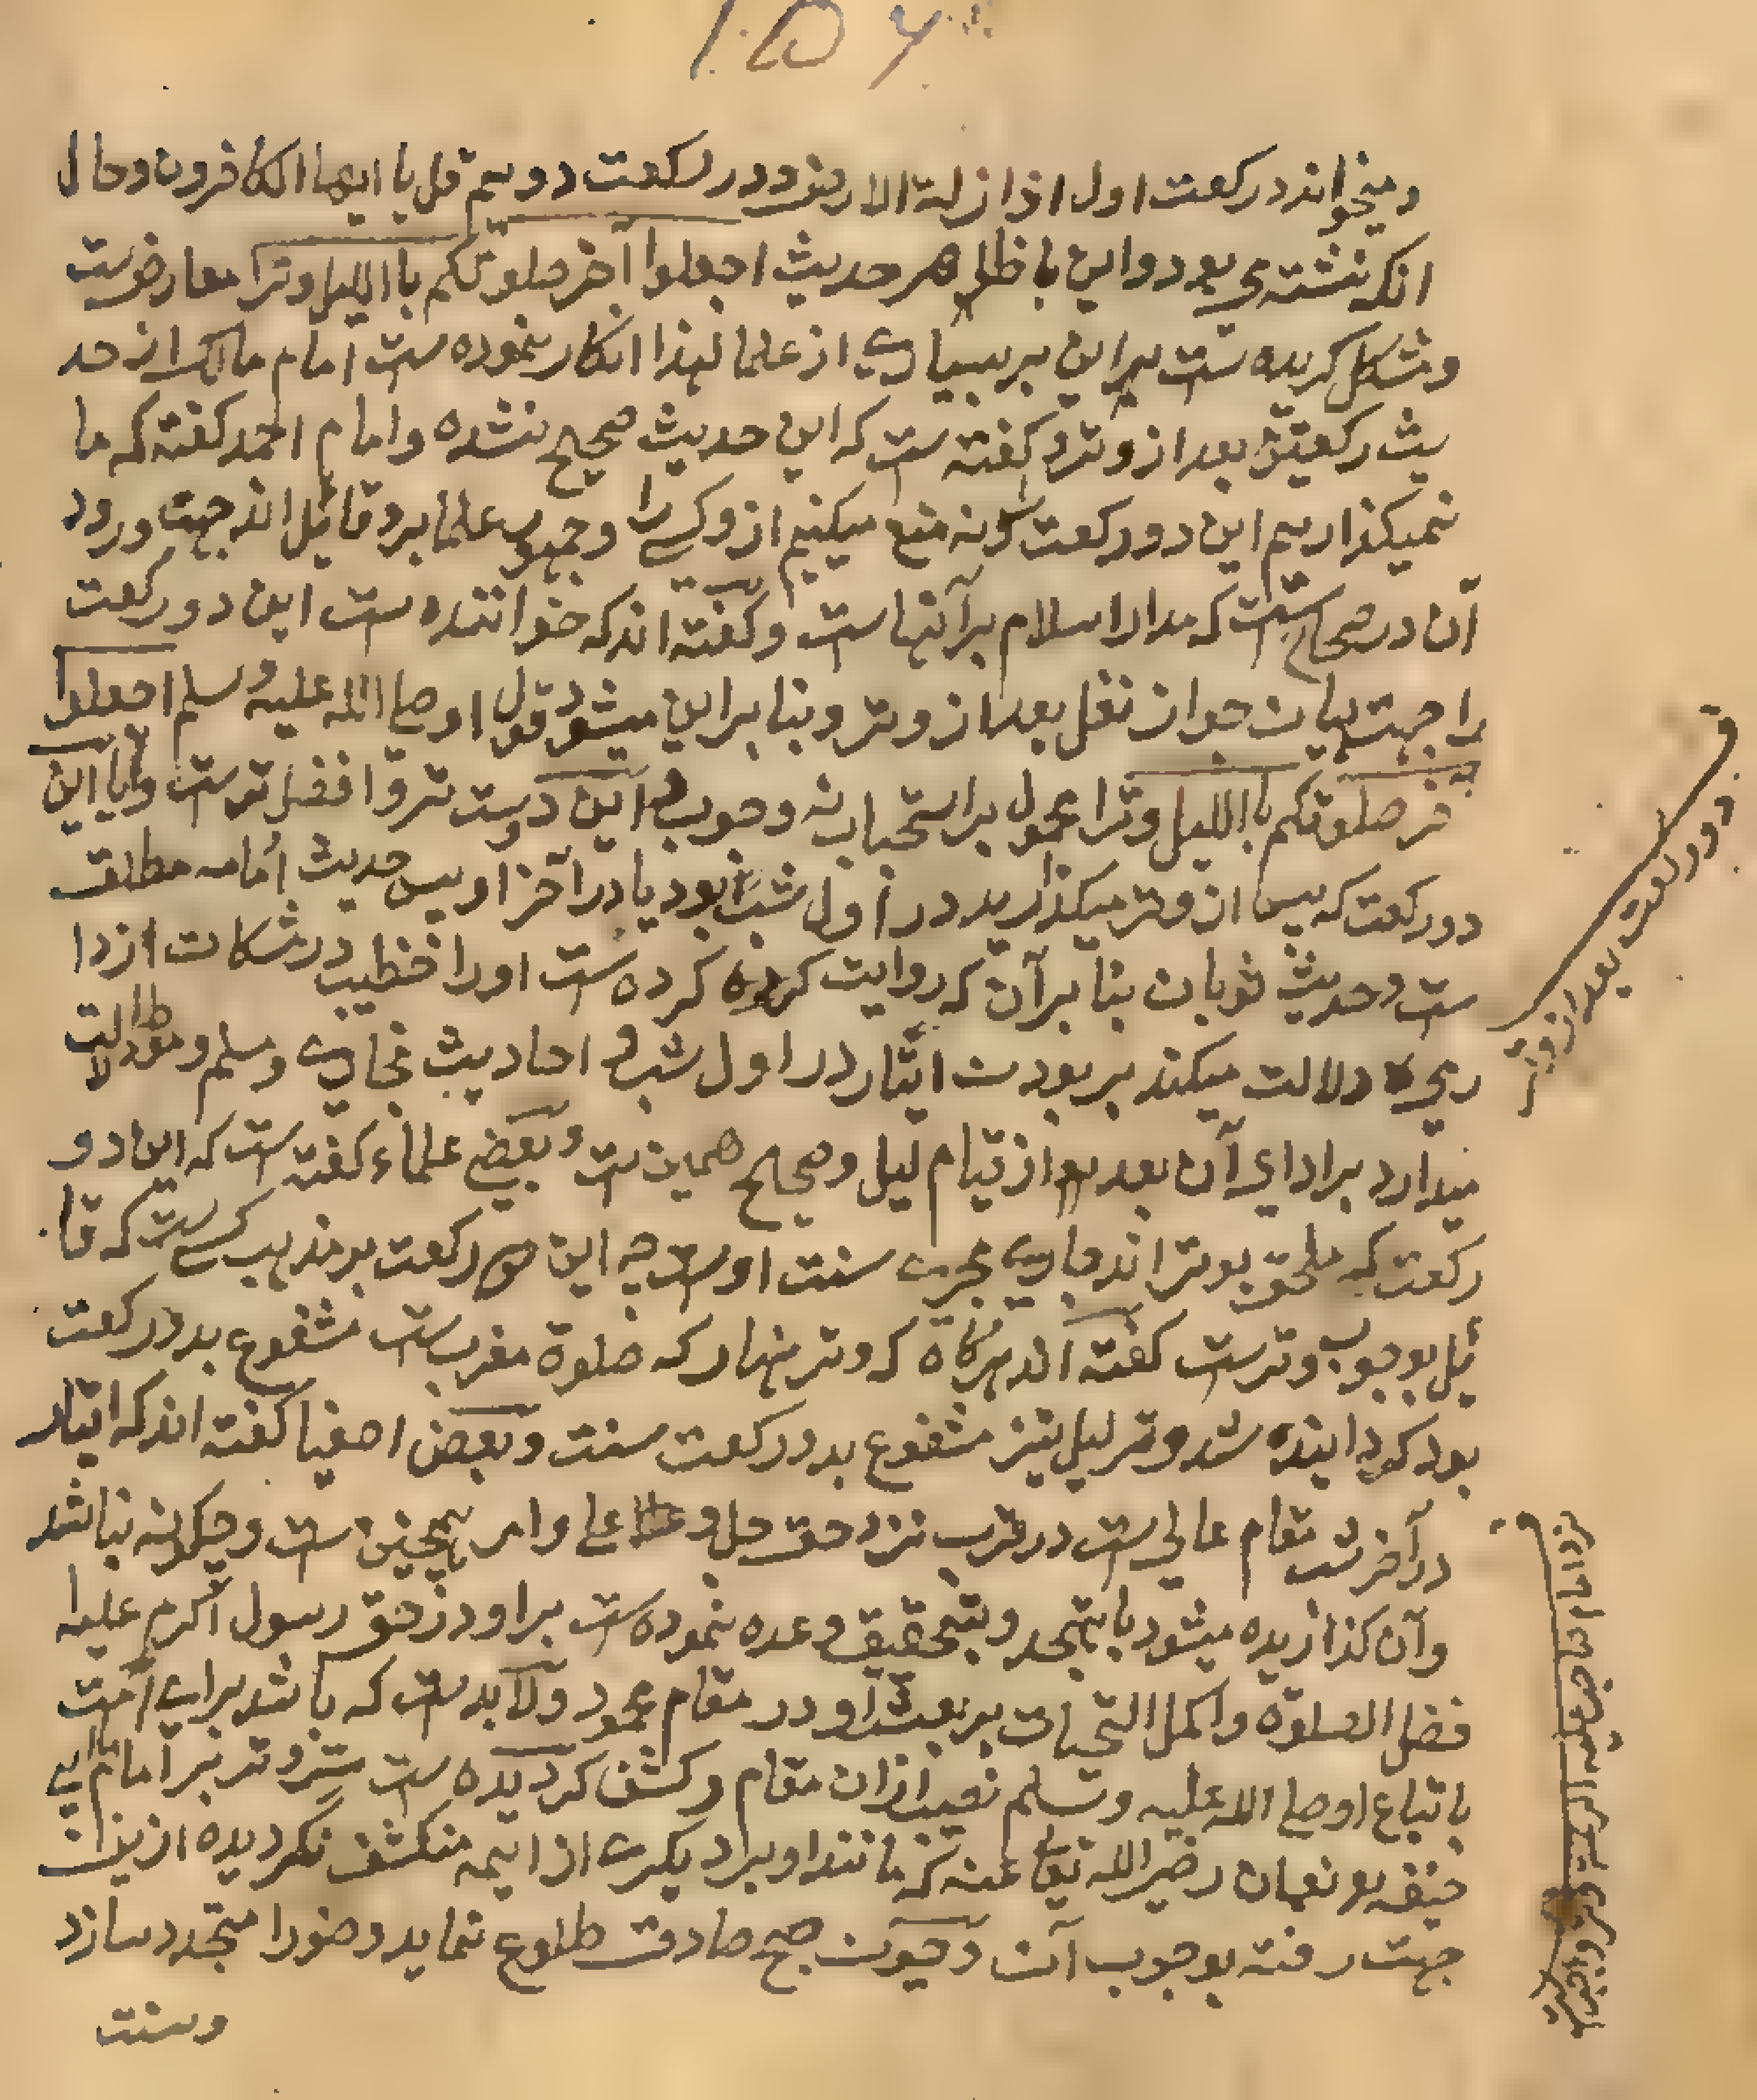 ۱۵۷
ومیخواند در رکعت اول اذا زلزلة الارض ودر رکعت دویم قل یا ایها الکافرون وحال
انکه نشته می بود واین با ظاهر حدیث اجعلوا آخر صلوتکم باالیل وترا معارض ست
ومشکل کردیده ست براین بر بسیاری از علما لهذا انکار نموده ست امام مالک از حد
یث رکعتین بعد از وتر وکفته ست که این حدیث صحیح نشده وامام احمد کفته که ما
نمیکذاریم این دو رکعت را ونه منع میکنیم از و کسے را وجمهور علما برو قائل اند جهت ورود
آن در صحاح ست که مدار اسلام بر آنها ست وکفته اند که خوانده ست این دو رکعت
را جهت بیان جواز نفل بعد از وتر وبنا براین میشود قول او صلی الله علیه وسلم اجعلوا
آخر صلوتکم باالیل وترا محمول بر استحباب نه وجوب این دوست تر وافضل ترست وآیا این
دو رکعت که پس از وتر میکذارید در اول شب بود یا در آخر او پس حدیث امامه مطلق
ست وحدیث ثوبان بنا بر آن که روایت کرده ست اورا خطیب در مشکات از دا
رمی دلالت میکند بر بودن ایتار در اول شب و احادیث بخاری ومسلم وموطا دلالت
میدارد بر ادای آن بعد از قیام لیل وصحیح همین ست وبعضے علماء کفته ست که این دو
رکعت که ملحق بوتر اند جاری مجری سنت اوست چه این رکعت بر مذهب کسے ست که قا
ئل بوجوب وترست کفته اند هرکاه که وتر نهار که صلوة مغرب ست مشفوع بدو رکعت
بود کردانیده شد وتر لیل نیز مشفوع بدو رکعت سنت وبعض اصفیا کفته اند که ایتار
در آخر شب مقام عالی ست در قرب نزد حق جل وعلا وامر همچنین ست وچکونه نباشد
وآن کذاریده میشود با تهجد وبتحقیق وعده نموده ست براو در حق رسول اکرم علیه ا
فضل الصلوة واکمل التحیات بر بعث او در مقام محمود ولا بدست که باشد برای امت
باتباع او صلی الله علیه وسلم نصیب ازان مقام وکشف کردیده ست سر وتر بر امام ابی
حنیفه نعمان رضی الله تعالی عنه که مانند او بر دیکری از ایمه منکشف نکردیده ازین
جهت رفته بوجوب آن وچون صبح صادق طلوع نماید وضو را متجدد سازد
وسنت
ف دو رکعت بعد از وتر
نزد امام ما صاحب علیه الرحمة وتر واجب است